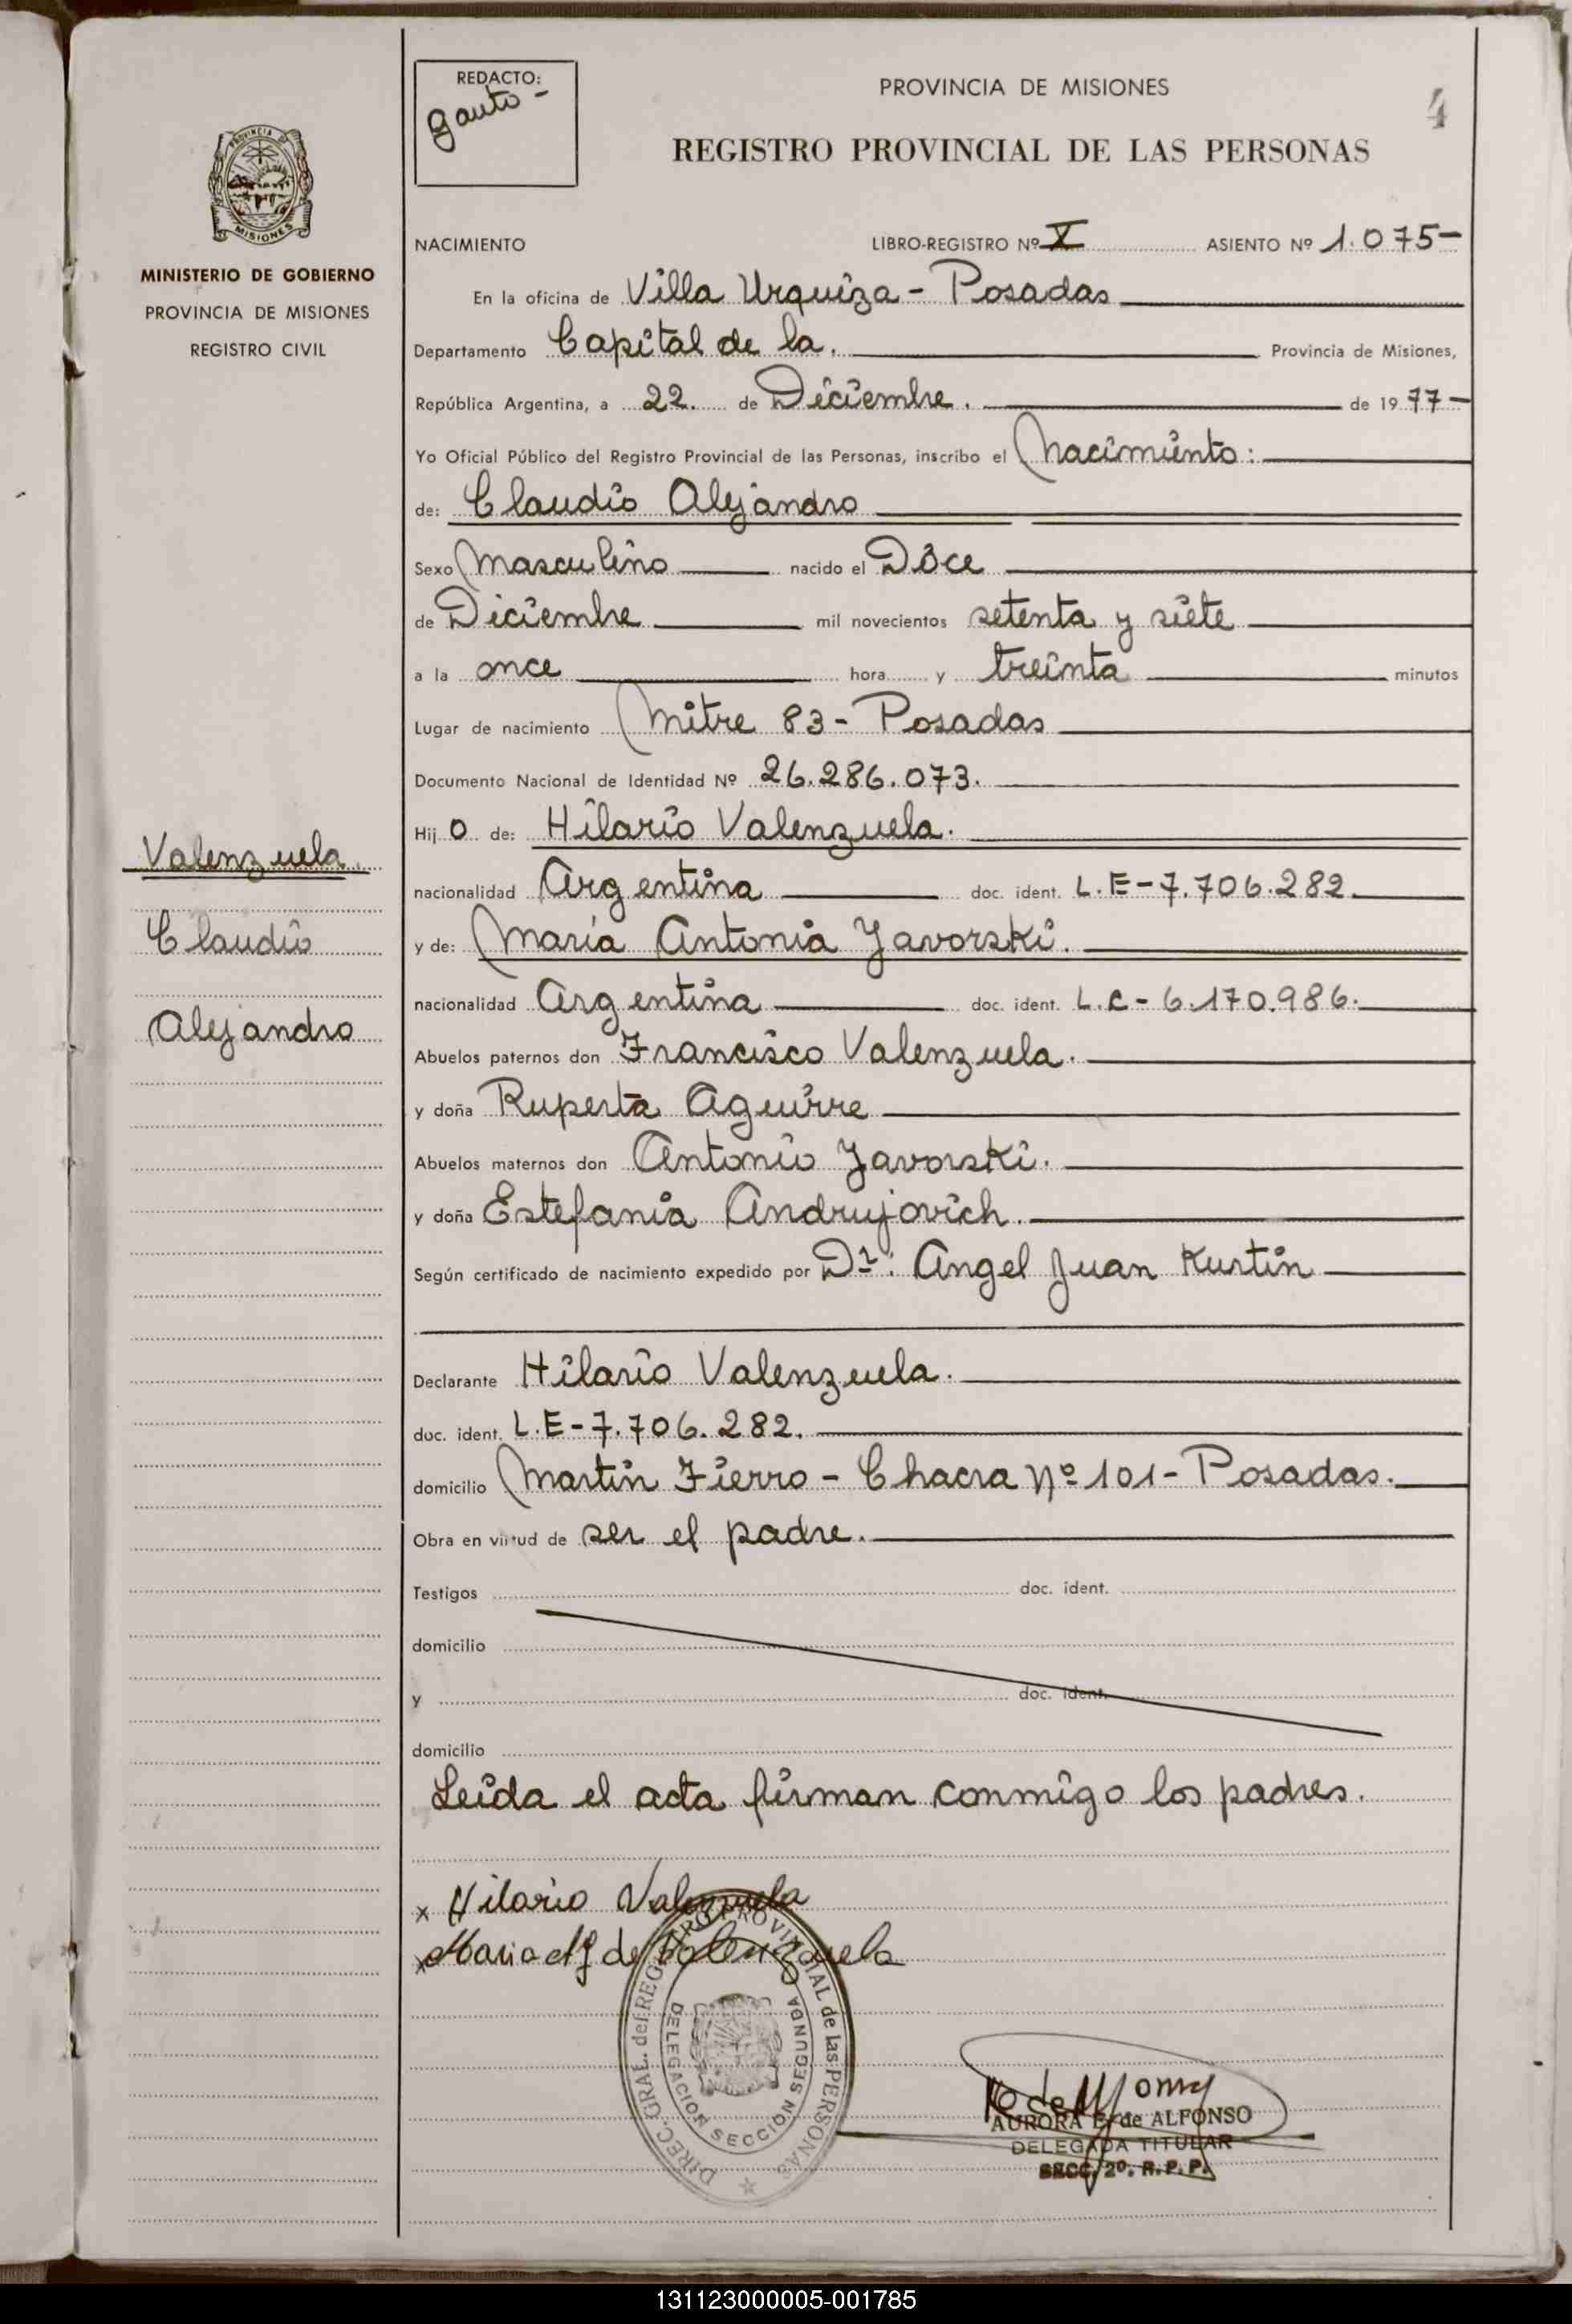 REDACTO:
Gauto -
PROVINCIA DE MISIONES
4
REGISTRO PROVINCIAL DE LAS PERSONAS
PROVINCIA DE
MISIONES
MINISTERIO DE GOBIERNO
PROVINCIA DE MISIONES
REGISTRO CIVIL
NACIMIENTO LIBRO-REGISTRO Nº X ASIENTO Nº 1.075-
En la oficina de Villa Urquiza - Posadas
Departamento Capital de la. Provincia de Misiones,
República Argentina, a 22 de Diciembre. de 1977-
Yo Oficial Público del Registro Provincial de las Personas, inscribo el Nacimiento:
de: Claudio Alejandro
Sexo Masculino nacido el Dôce
de Diciembre mil novecientos setenta y siete
a la once hora y treinta minutos
Lugar de nacimiento Mitre 83- Posadas
Documento Nacional de Identidad Nº 26.286.073.
Hijo de: Hilario Valenzuela.
nacionalidad Argentina doc. ident. L.E-7.706.282.
y de: María Antonia Javorski.
nacionalidad Argentina doc. ident. L.C- 6.170.986.
Abuelos paternos don Francisco Valenzuela.
y doña Ruperta Aguirre
Abuelos maternos don Antonio Javorski.
y doña Estefania Andrujovich.
Según certificado de nacimiento expedido por Dr: Angel Juan Kurtin
Declarante Hilario Valenzuela.
doc. ident. L.E-7.706.282.
domicilio Martin Fierro - Chacra Nº 101- Posadas.
Obra en virtud de ser el padre.
Testigos doc. ident.
domicilio
y doc. ident.
domicilio
Leida el acta firman conmigo los padres.
x Hilario Valenzuela
x Maria A J de Valenzuela
Valenzuela.
Claudio
Alejandro
DIREC. GRAL. del REGISTRO PROVINCIAL de las PERSONAS
DELEGACION SECCION SEGUNDA
AURORA E. de ALFONSO
DELEGADA TITULAR
SECC. 2º. R. P. P.
131123000005-001785